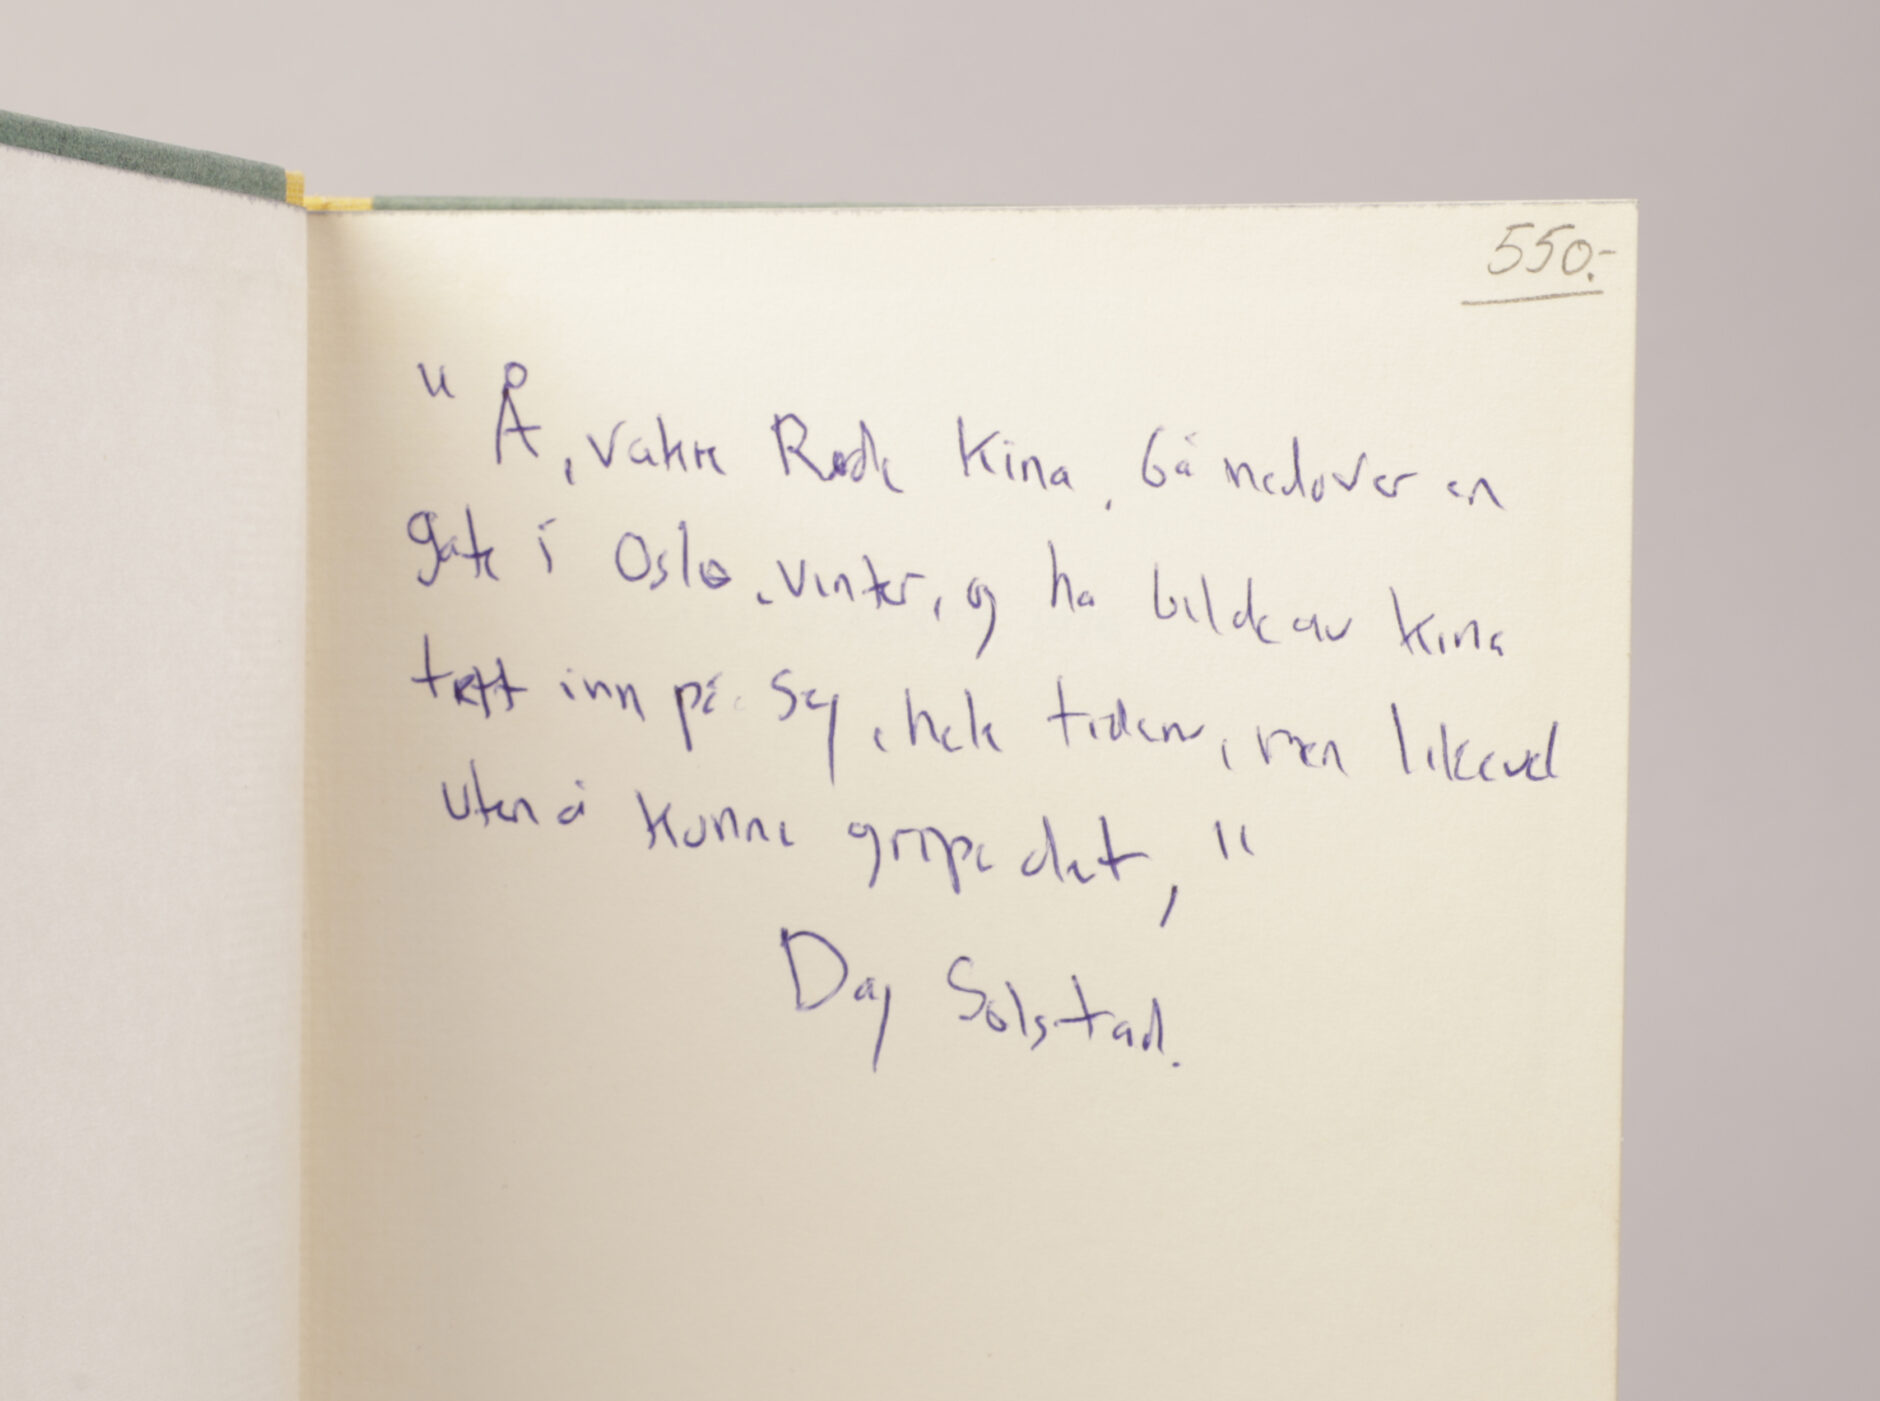 550.-
" Å, vakre Røde Kina. Gå nedover en
gate i Oslo, vinter, og ha bilde av Kina
tett inn på seg, hele tiden, men likevel
uten å kunne gripe det, "
Dag Solstad.